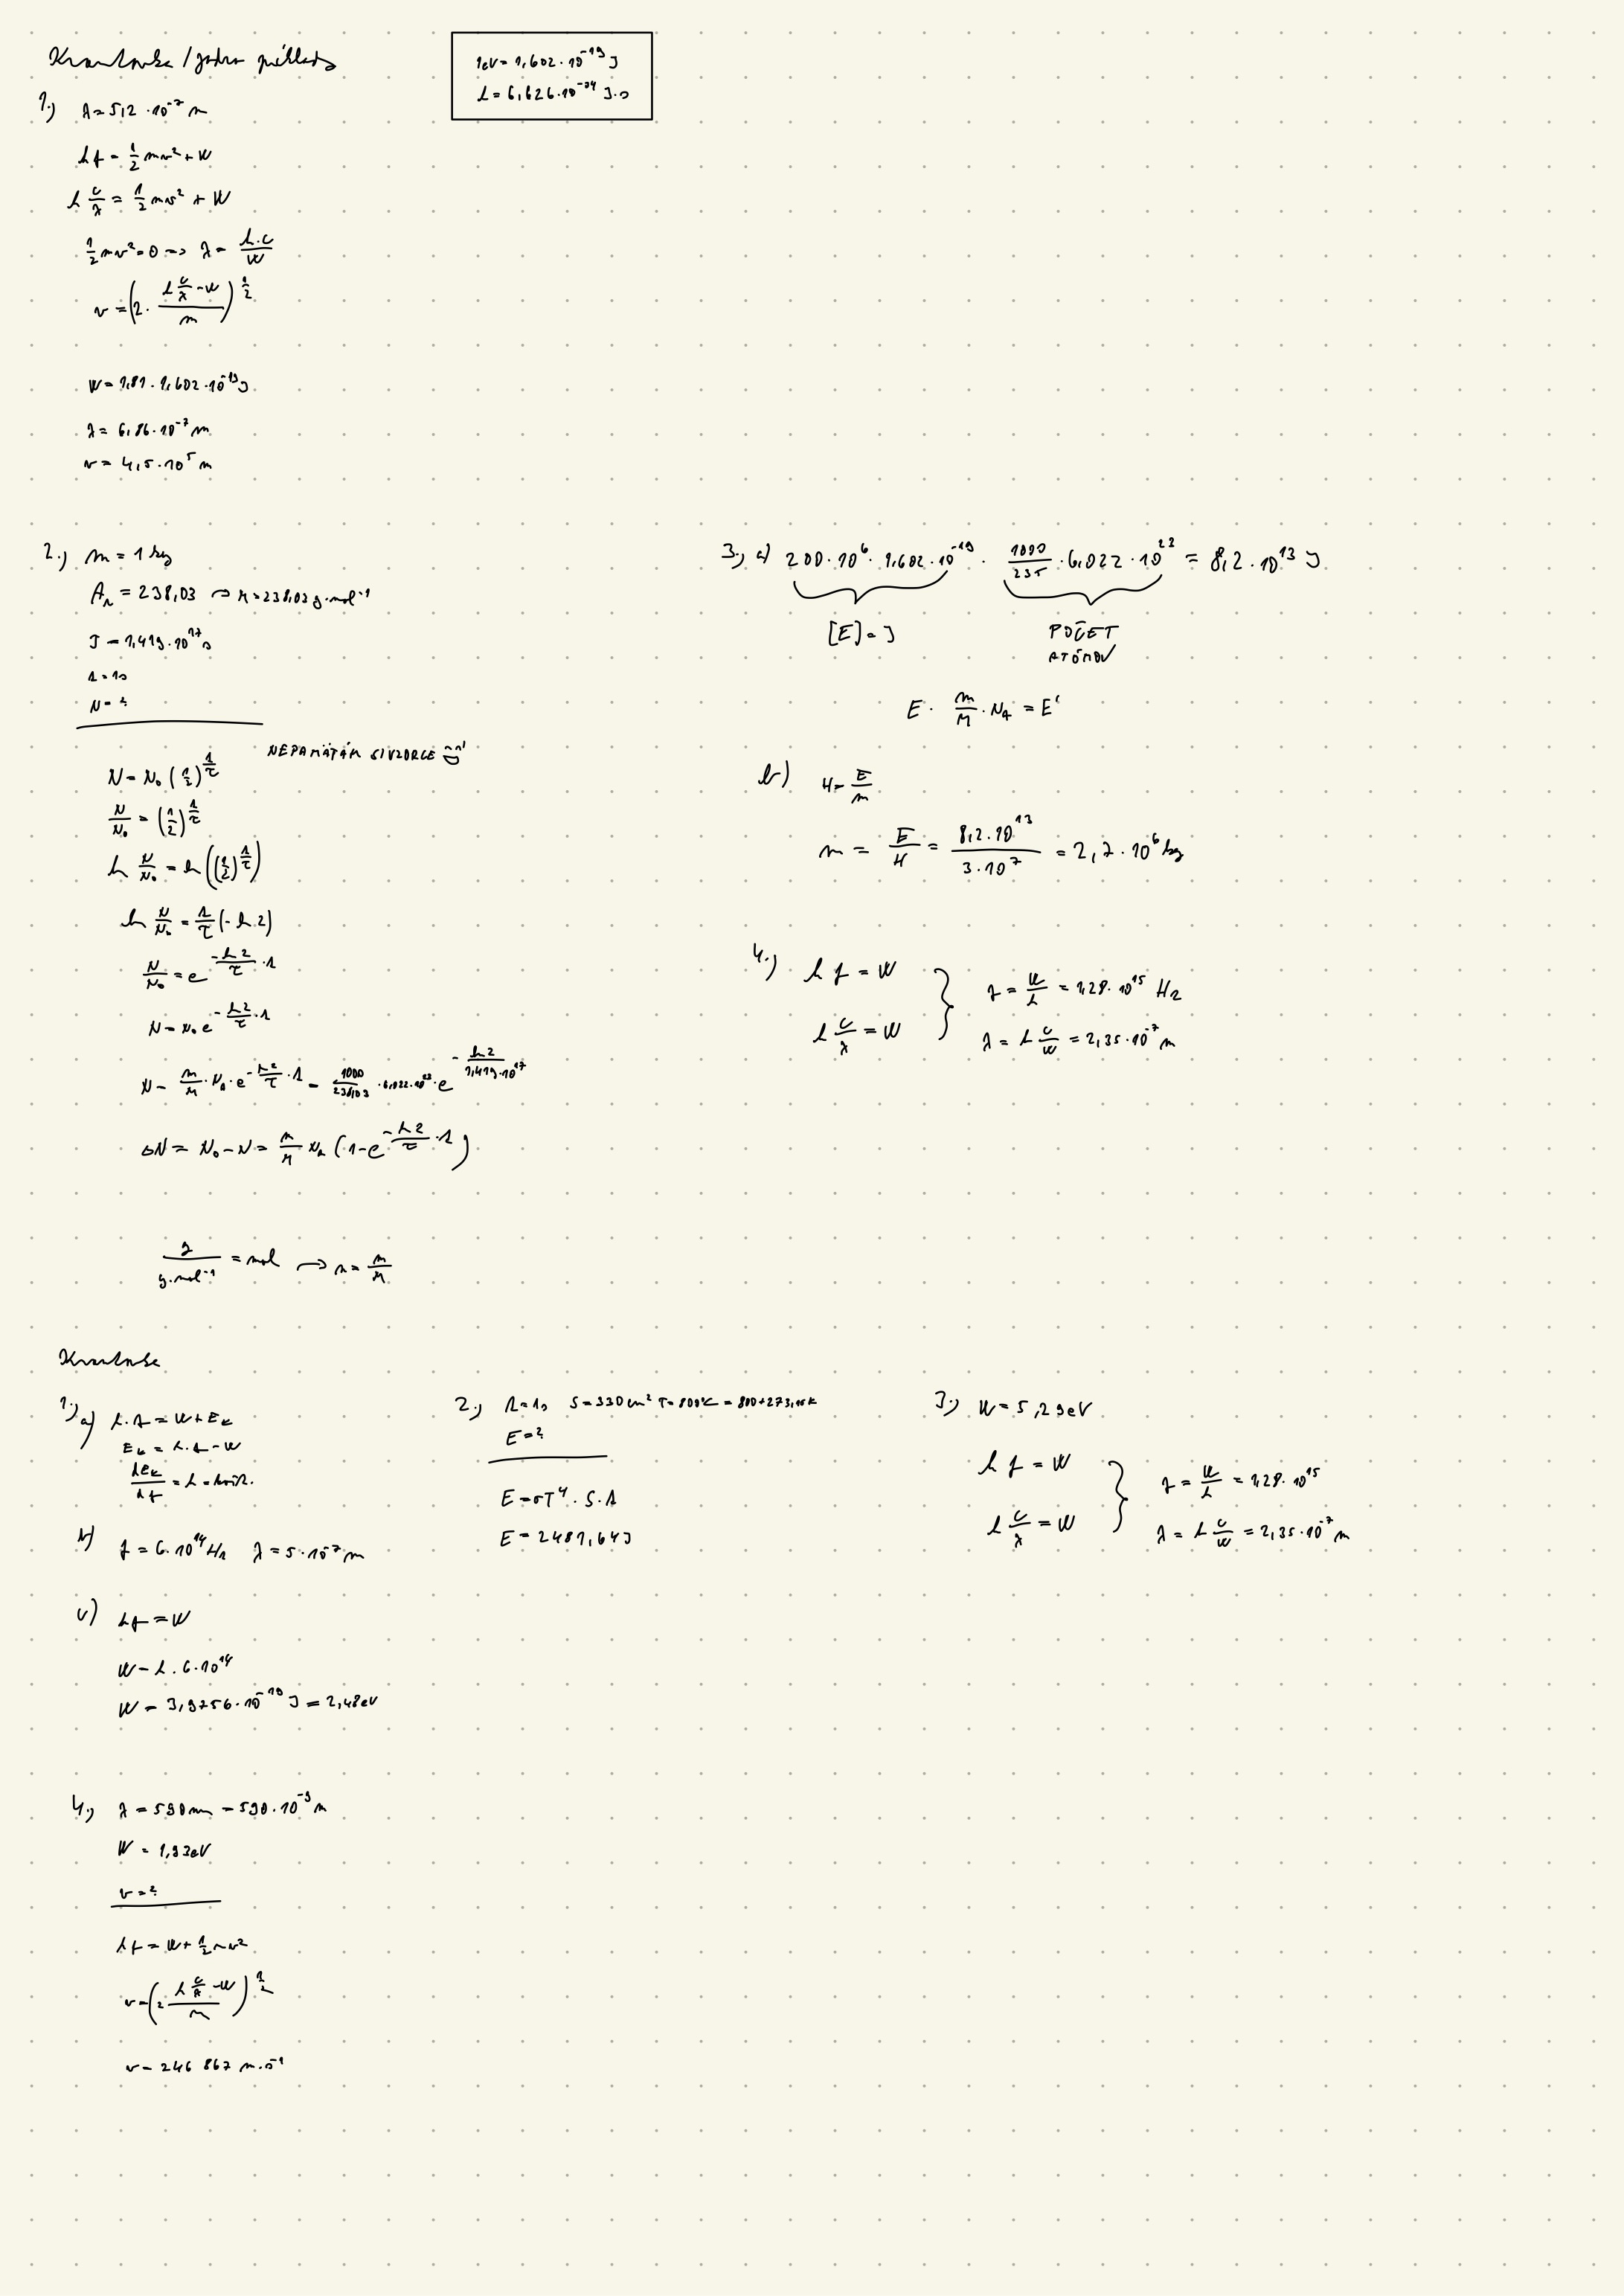 Kvantovka / jadro příklady
1eV = 1,602 · 10^-19 J
h = 6,626 · 10^-34 J·s
1.) λ = 5,2 · 10^-7 m
hf = 1/2 mv² + W
h c/λ = 1/2 mv² + W
1/2 mv² = 0 => λ = h·c/W
v = (2 · (h c/λ - W)/m)^1/2
W = 1,81 · 1,602 · 10^-19 J
λ = 6,86 · 10^-7 m
v = 4,5 · 10^5 m
2.) m = 1 kg
A_r = 238,03 → M = 238,03 g·mol^-1
T = 1,419 · 10^17 s
t = 1s
N = ?
NEPAMÄTÁM SI VZORCE
N = N₀ (1/2)^(t/τ)
N/N₀ = (1/2)^(t/τ)
ln N/N₀ = ln((1/2)^(t/τ))
ln N/N₀ = t/τ (-ln 2)
N/N₀ = e^(-ln2/τ · t)
N = N₀ e^(-ln2/τ · t)
N = m/M · N_A · e^(-ln2/τ · t) = 1000/238,03 · 6,022 · 10^23 · e^(-ln2/1,419·10^17)
ΔN = N₀ - N = m/M N_A (1 - e^(-ln2/τ · t))
g/g·mol^-1 = mol → n = m/M
3.) a) 200 · 10^6 · 1,602 · 10^-19 · 1000/235 · 6,022 · 10^23 = 8,2 · 10^13 J
[E] = J
POČET
ATÓMOV
E · m/M · N_A = E'
b) H = E/m
m = E/H = 8,2 · 10^13/3 · 10^7 = 2,7 · 10^6 kg
4.) hf = W
h c/λ = W
f = W/h = 1,28 · 10^15 Hz
λ = h c/W = 2,35 · 10^-7 m
Kvantovka
1.) a) h·f = W + E_k
E_k = h·f - W
ΔE_k/Δf = h = konšt.
b) f = 6 · 10^14 Hz λ = 5 · 10^-7 m
c) hf = W
W = h · 6 · 10^14
W = 3,9756 · 10^-19 J = 2,48 eV
2.) t = 1s S = 330 cm² T = 800°C = 800 + 273,15 K
E = ?
E = σT⁴ · S · t
E = 2481,64 J
3.) W = 5,29 eV
hf = W
h c/λ = W
f = W/h = 1,28 · 10^15
λ = h c/W = 2,35 · 10^-7 m
4.) λ = 590 nm = 590 · 10^-9 m
W = 1,93 eV
v = ?
hf = W + 1/2 mv²
v = (2 (h c/λ - W)/m)^1/2
v = 246 867 m·s^-1